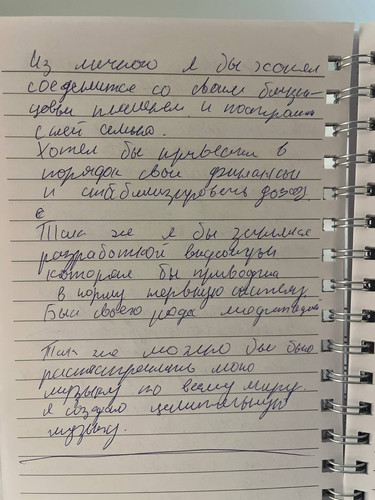 Из личного я бы хотел
соединится со своим близне-
цовым пламенем и построить
с ней семью.
Хотел бы привести в
порядок свои финансы
и стабилизировать доход.
с
Так же я бы занялся
разработкой видеоигры
которая бы приводила
в норму нервную систему
Был своего рода медитацией
Так же можно бы было
распространять мою
музыку по всему миру.
Я создаю целительную
музыку.